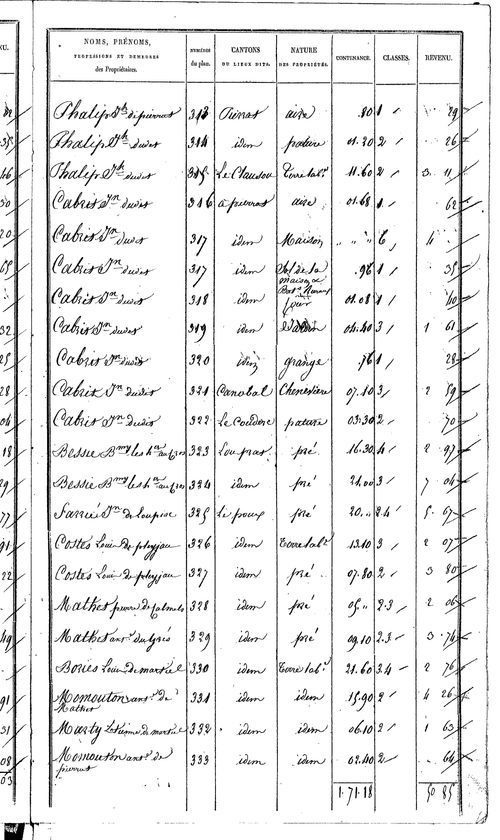 NOMS, PRÉNOMS, PROFESSIONS ET DEMEURES des Propriétaires. NUMÉROS du plan. CANTONS OU LIEUX DITS. NATURE DES PROPRIÉTÉS. CONTENANCE. CLASSES. REVENU.
Phalip Jh de pierrat 313 aire .80 1 29
Phalip Jh dudit 314 idem pature 01.20 2 26
Phalip Jh dudit 315 Le Clauson Terre labe 11.60 2 3 11
Cabrit Jn dudit 316 à pierrat aire 01.68 1 62
Cabrit Jn dudit 317 idem Maison " " " 6 4
Cabrit Jn dudit 317 idem Sol de la maison .96 1 35
Cabrit Jn dudit 318 idem four 01.08 1 40
Cabrit Jn dudit 319 idem Jardin 04.40 3 1 61
Cabrit Jn dudit 320 idem grange .76 1 28
Cabrit Jn dudit 321 Canabal Chenevière 07.10 3 2 89
Cabrit Jn dudit 322 Le Couderc pature 03.30 2 70
Bessie Bmy les her au 323 Lou prat pré 16.30 4 2 97
Bessie Bmy les her au 324 idem pré 21.00 3 7 04
Farrié Jn de loupiac 325 Le poux pré 20. " 2.4 5 67
Costes Louis de 326 idem Terre labe 13.10 3 2 07
Costes Louis de 327 idem pré 07.80 2 3 80
Mathet pierre de 328 idem pré 05 " 2.3 2 06
Mathet ant. du Grès 329 idem pré 09.10 2.3 3 74
Bories Louis de martiel 330 idem Terre labe 21.60 3.4 2 76
Momouton ant. de Mathet 331 idem idem 15.90 2 4 26
Marty Etienne de martiel 332 idem idem 06.10 2 1 63
Momouton ant. de pierrat 333 idem idem 02.40 2 64
1.71.18 50 85